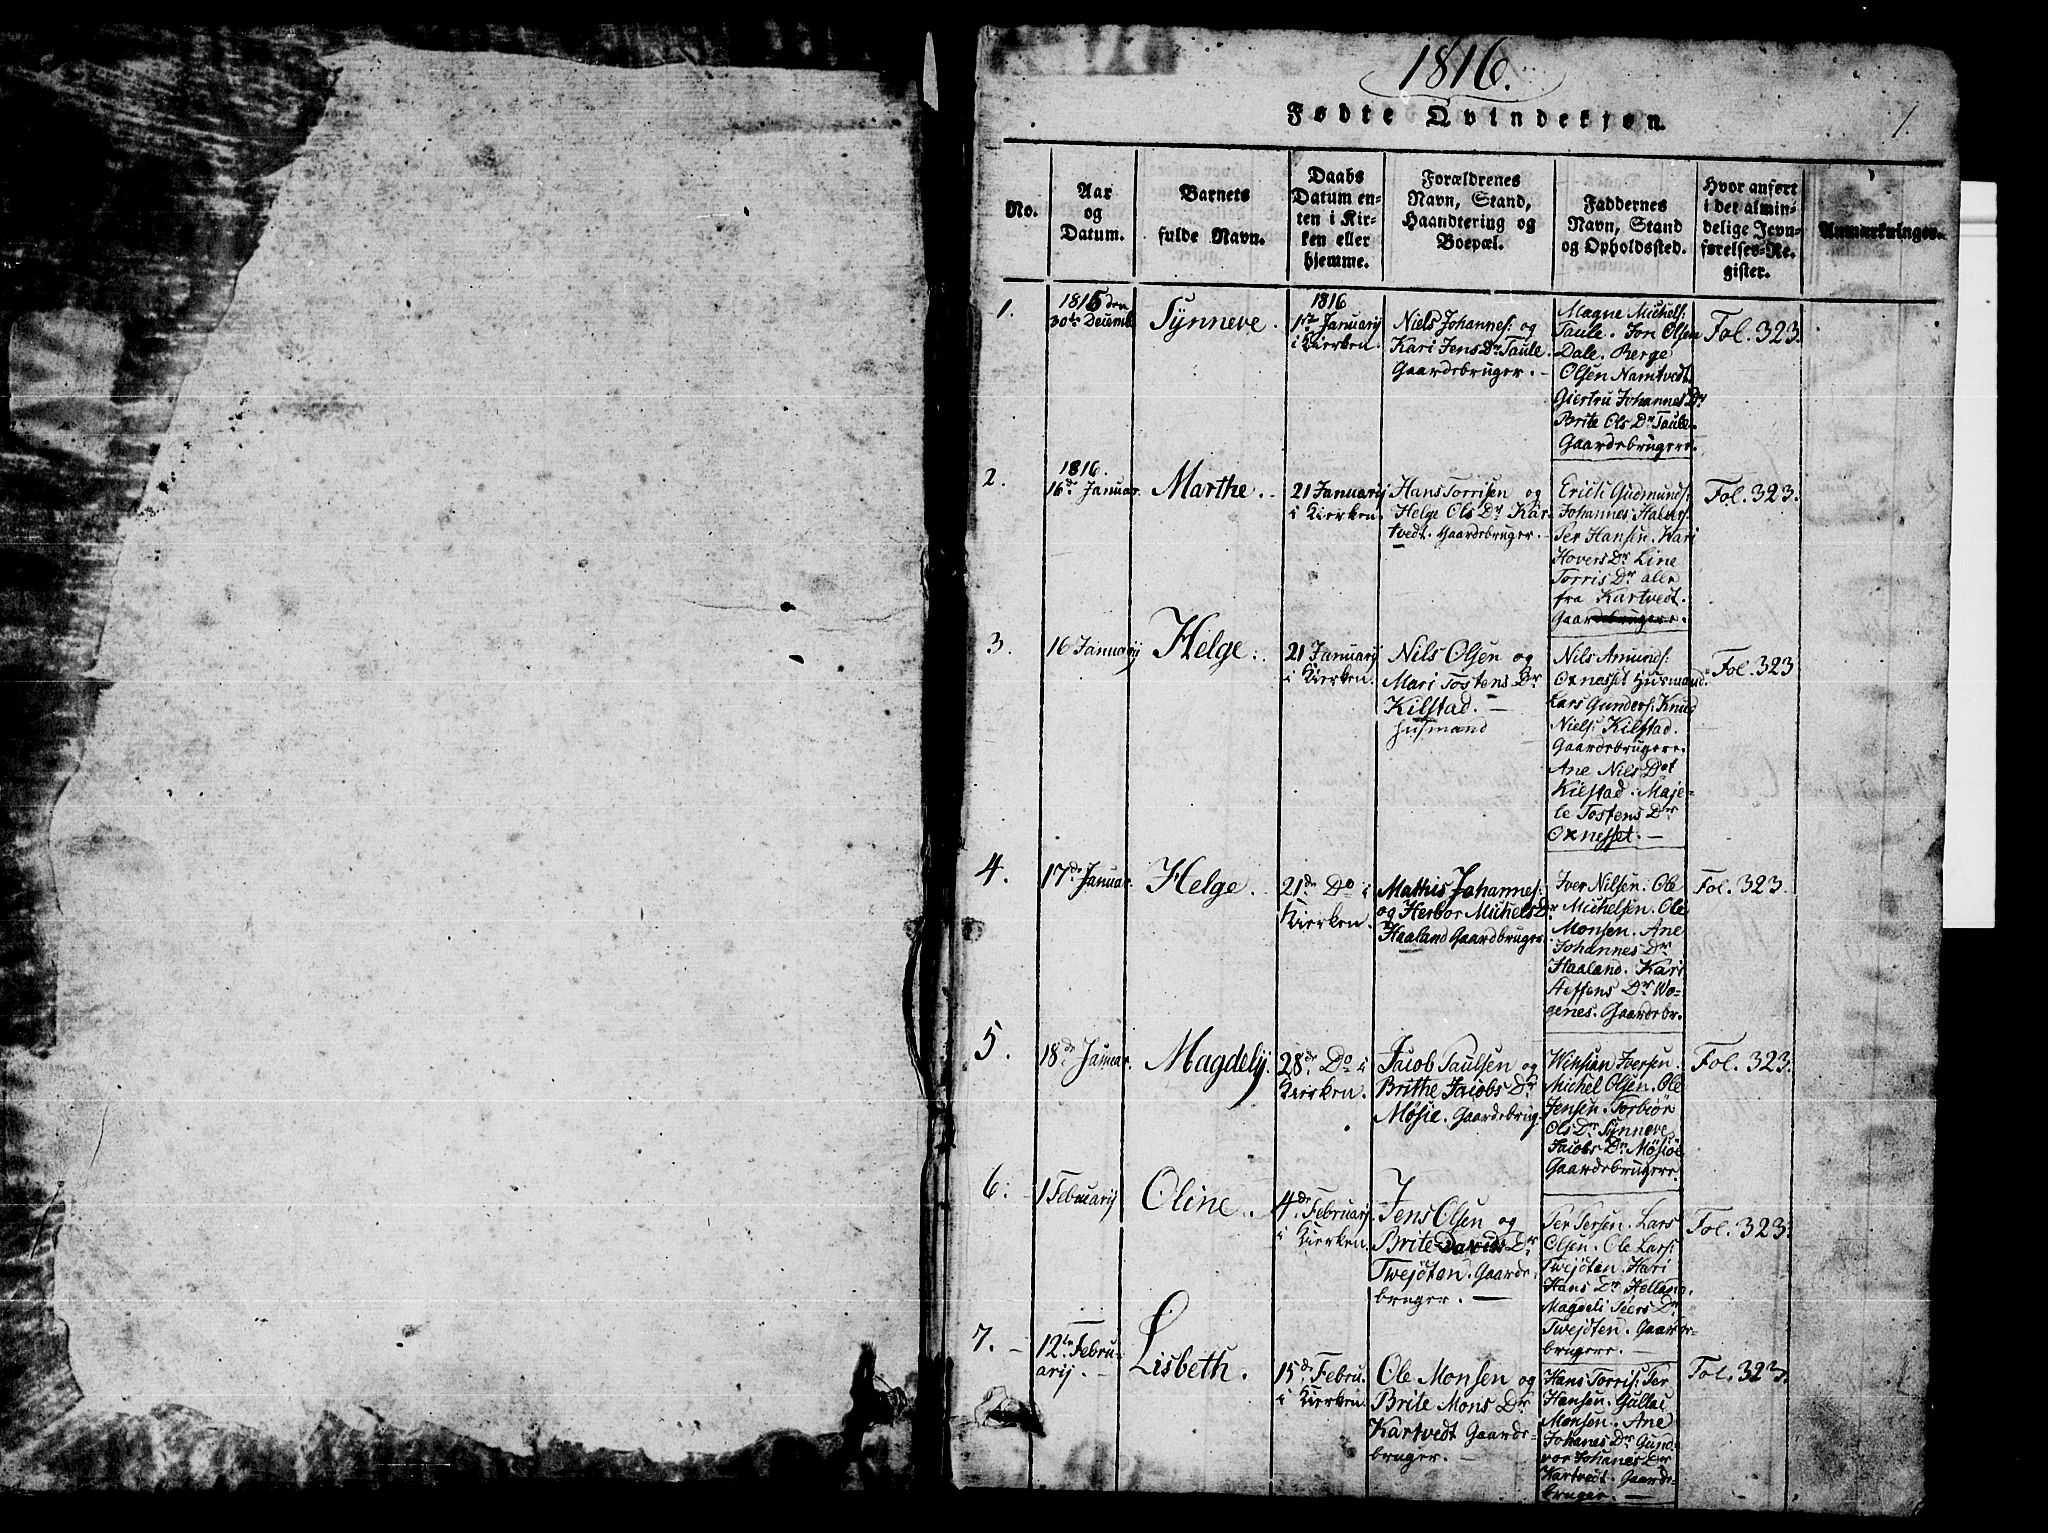 1816.
Fødte Qvindekjøn.
1.
No.
Aar
og
Datum.
Barnets
fulde Navn.
Daabs
Datum en-
ten i Kir-
ken eller
hjemme.
Forældrenes
Navn, Stand,
Haandtering og
Boepæl.
Faddernes
Navn, Stand
og Opholdssted.
Hvor anført
i det almin-
delige Jevn-
førelses-Re-
gister.
Anmærkninger.
1.
1815 den
30te Decemb
Synneve.
1816
1ste Januarij
i Kierken.
Niels Johannes: og
Kari Jens Dr Taule.
Gaardebruger. -
Magne Michels:
Taule. Jon Olsen
Dale. Berge
Olsen Namtvedt.
Giertru Johannes Dr
Brite Ols Dr Taule.
Gaardebrugere.
Fol. 323.
2.
1816.
16de Januar.
Marthe.
21 Januarij
i Kierken.
Hans Torrisen og
Helge Ols Dr Kar-
tvedt. Gaardebruger. -
Erich Gudmunds:
Johannes Halvers:
Per Hansen. Kari
Hovers Dr Line
Torris Dr alle
fra Kartvedt.
Gaardebrugere.
Fol. 323.
3.
16 Januarij
Helge.
21 Januarij
i Kierken.
Nils Olsen og
Mari Tostens Dr
Kilstad. -
Husmand
Nils Amunds:
Oxnesset Husmand.
Lars Gunders: Knud
Niels: Kilstad.
Gaardebrugere.
Ane Nils Dat
Kilstad. Maje-
le Tostens Dr
Oxnesset. -
Fol. 323
4.
17de Januar.
Helge.
21de Do i
Kierken.
Mathis Johannes:
og Herbor Michels Dr
Haaland Gaardbruger.
Iver Nilsen. Ole
Michelsen. Ole
Monsen. Ane
Johannes Dr
Haaland. Kari
Steffens Dr Wo-
genes. Gaardebr.
Fol. 323.
5.
18de Januar.
Magdelij.
28de Do i
Kierken.
Jacob Paulsen og
Brithe Jacobs Dr
Møsie. Gaardebrug.
Iversen.
Michel Olsen. Ole
Jensen. Torbiør
Ols Dr Synneve
Jacobs Dr Møsiø
Gaardebrugere.
Fol. 323.
6.
1 Februarij
Oline.
4de Februarij.
i Kierken.
Jens Olsen og
Brite Davids Dr
Twejten. Gaarde-
bruger. -
Per Persen. Lars
Olsen. Ole Lars:
Twejten. Kari
Hans Dr Helland.
Magdeli Siers Dr
Twejten. Gaarde-
brugere. -
Fol. 323.
7. -
12te Febru-
arij. -
Lisbeth.
15de Febru.
i Kierken.
Ole Monsen og
Brite Mons Dr
Kartvedt Gaarde-
bruger. -
Hans Torris: Per
Hansen. Gullac
Monsen. Ane
Johanes Dr Gund-
vor Johanes Dr
Kartvedt. Gaarde-
bruger. -
Fol. 323.